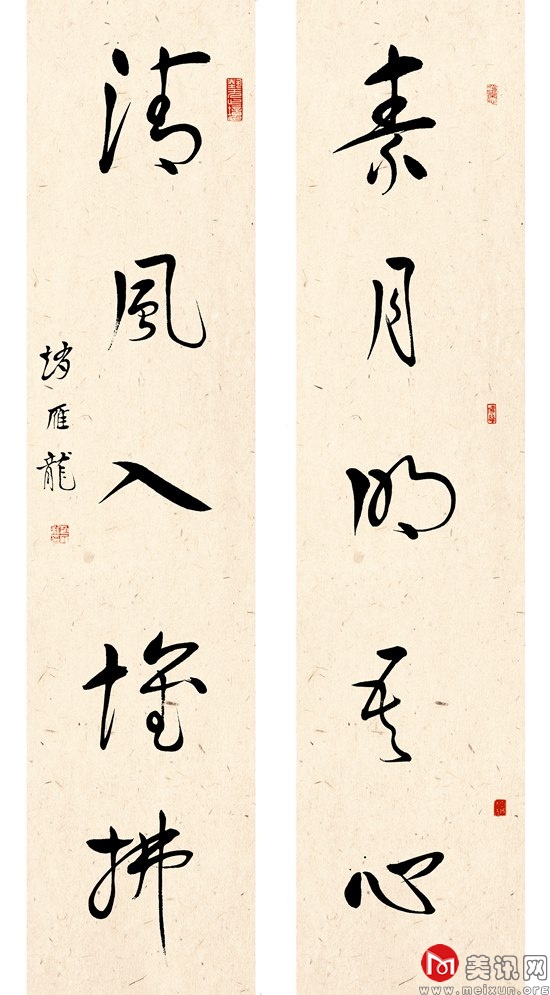 素月明其心
清風入拂
趙雁龍
美讯网
www.meixun.org